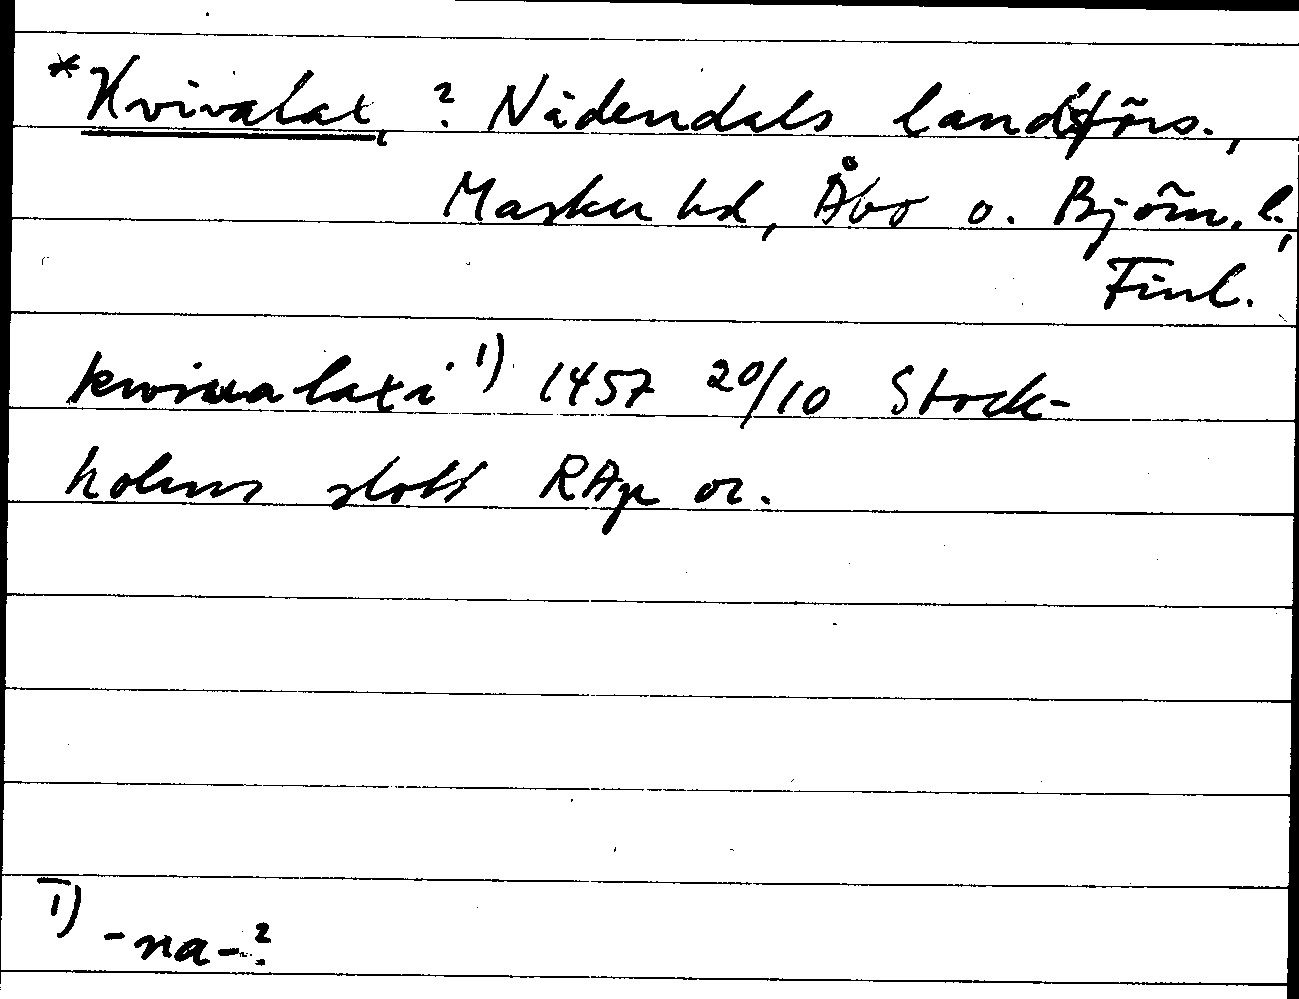 *Kvivalax, ? Nådendals landsförs.,
Masku hd, Åbo o. Björn. l.,
Finl.
kwiualaxi 1) 1457 20/10 Stock-
holms slott RAp or.
1) -na-?